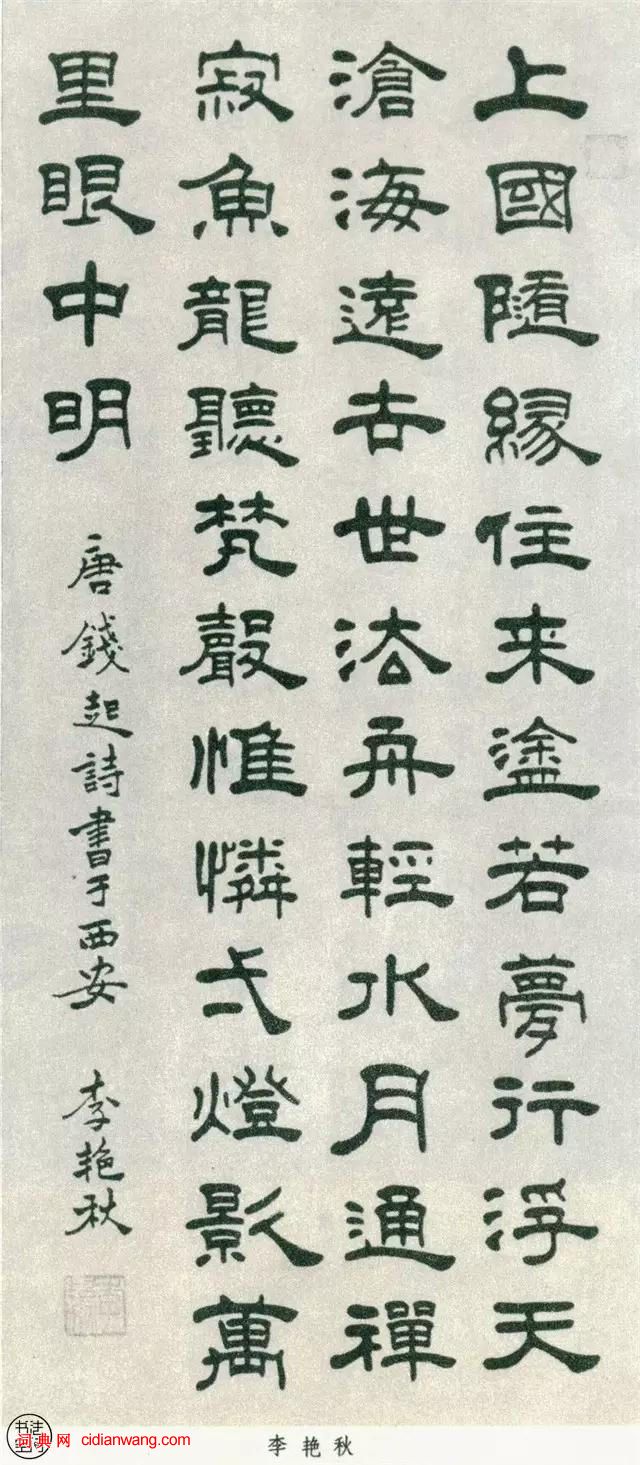 上國随緣住来塗若夢行浮天
滄海遠去世法舟輕水月通禪
寂魚龍聽梵聲惟憐弌燈影萬
里眼中明
唐錢起詩書于西安 李艳秋
词典网 cidianwang.com
李艳秋